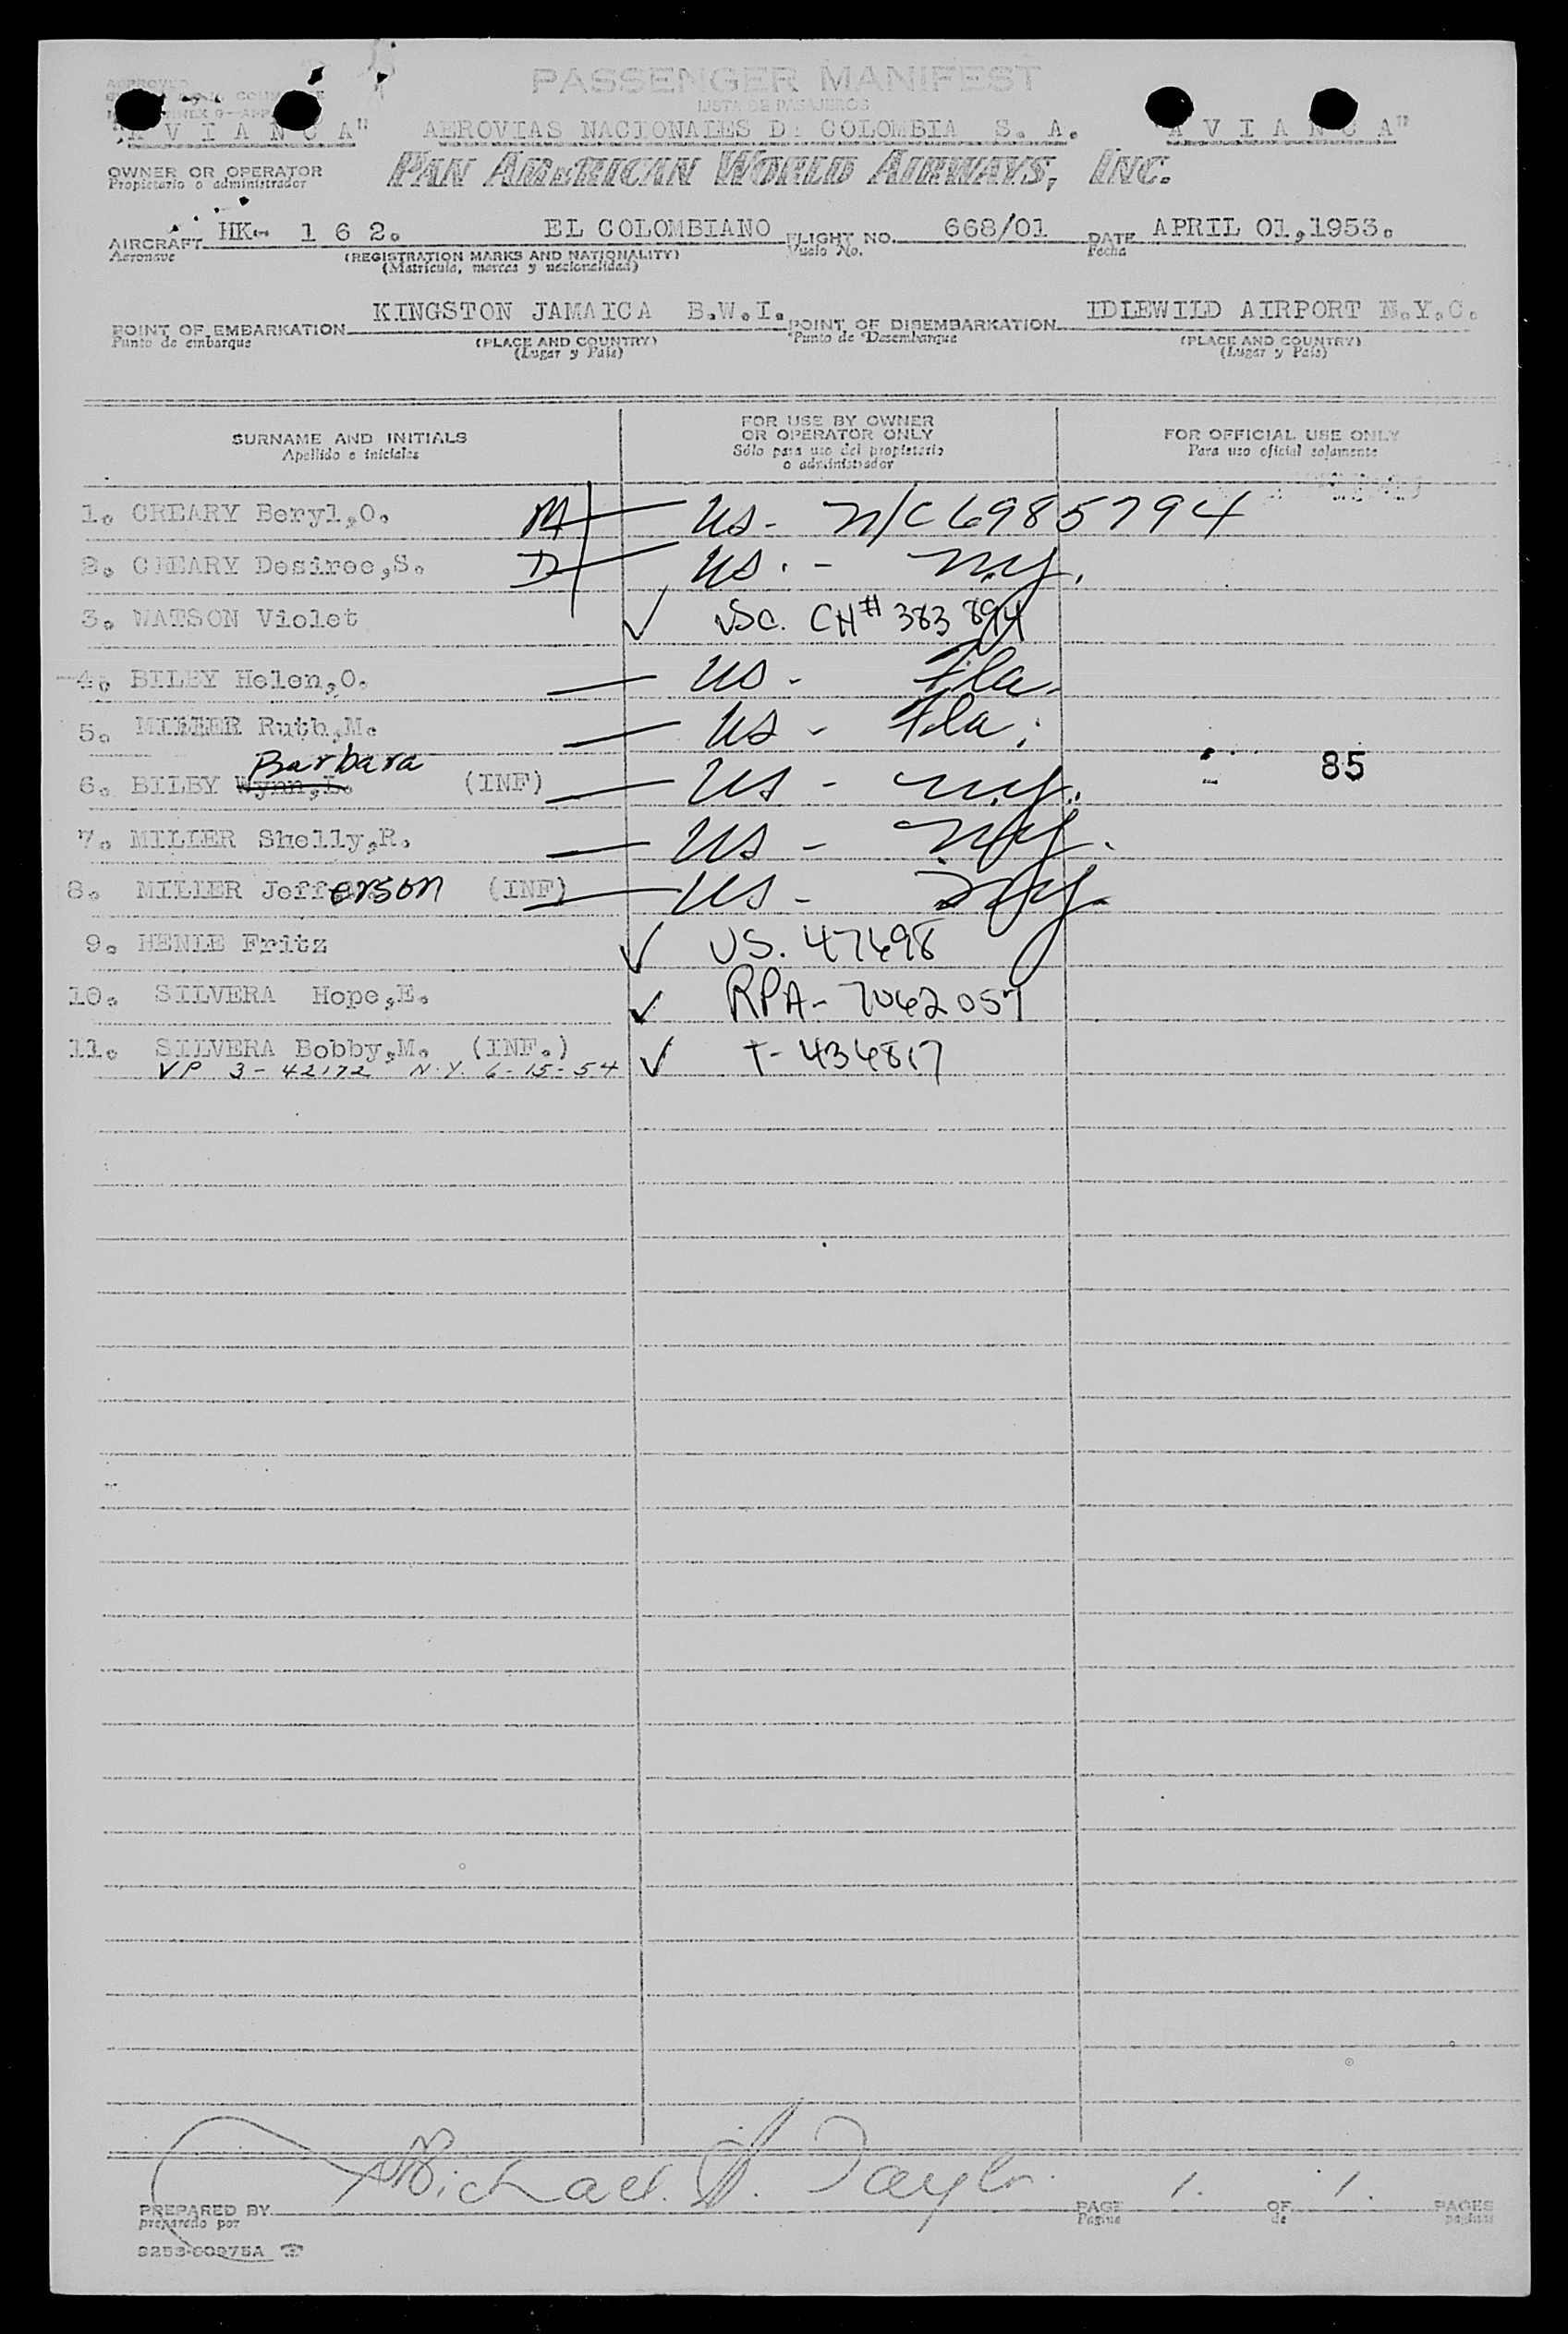 PASSENGER MANIFEST
LISTA DE PASAJEROS
"AVIANCA" AEROVIAS NACIONALES DE COLOMBIA S. A. "AVIANCA"
OWNER OR OPERATOR PAN AMERICAN WORLD AIRWAYS, INC.
Propietario o administrador
AIRCRAFT HK- 1 6 2. EL COLOMBIANO FLIGHT NO. 668/01 DATE APRIL 01,1953.
Aeronave (REGISTRATION MARKS AND NATIONALITY) Vuelo No. Fecha
(Matricula, marcas y nacionalidad)
POINT OF EMBARKATION KINGSTON JAMAICA B.W.I. POINT OF DISEMBARKATION IDLEWILD AIRPORT N.Y.C.
Punto de embarque (PLACE AND COUNTRY) Punto de Desembarque (PLACE AND COUNTRY)
(Lugar y Pais) (Lugar y Pais)
SURNAME AND INITIALS
Apellido e iniciales
FOR USE BY OWNER
OR OPERATOR ONLY
Sólo para uso del propietario
o administrador
FOR OFFICIAL USE ONLY
Para uso oficial solamente
1. CREARY Beryl,O. M US - N/C 6985794
2. CREARY Desiree,S. D US. - N.Y.
3. WATSON Violet ✓ CH# 383 894
4. BILBY Helen,O. US - Fla.
5. MILLER Ruth,M. US - Fla.
Barbara
6. BILBY Wynn,L. (INF) US - N.Y. 85
7. MILLER Shelly,R. US - N.Y.
8. MILLER Jefferson (INF) US - N.Y.
9. HENLE Fritz ✓ US. 47698
10. SILVERA Hope,E. ✓ RPA- 7062057
11. SILVERA Bobby,M. (INF.) ✓ T- 434817
VP 3-42172 N.Y. 6-15-54
PREPARED BY Michael A. Taylor PAGE 1. OF 1. PAGES
preparado por Pagina de paginas